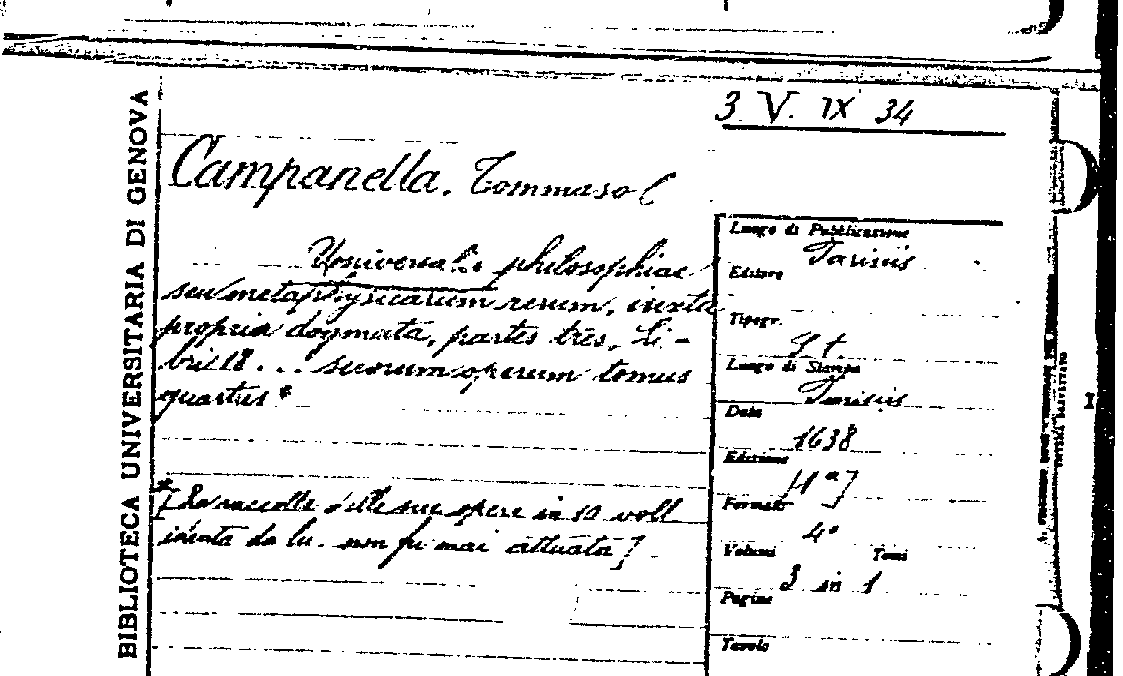 3 V. IX 34
BIBLIOTECA UNIVERSITARIA DI GENOVA
Campanella. Tommaso
Universalis philosophiae
seu metaphysicarum rerum, iuxta
propria dogmata, partes tres, Li-
bri 18 . . . suorum operum tomus
quartus *
* [La raccolta delle sue opere in 10 voll
ideata da lu. non fu mai attuata]
Luogo di Pubblicazione
Parisiis
Editore
Tipogr.
Luogo di Stampa
Parisiis
Data
1638
Edizione
[1ª]
Formato
4º
Volumi Tomi
3 in 1
Pagine
Tavole